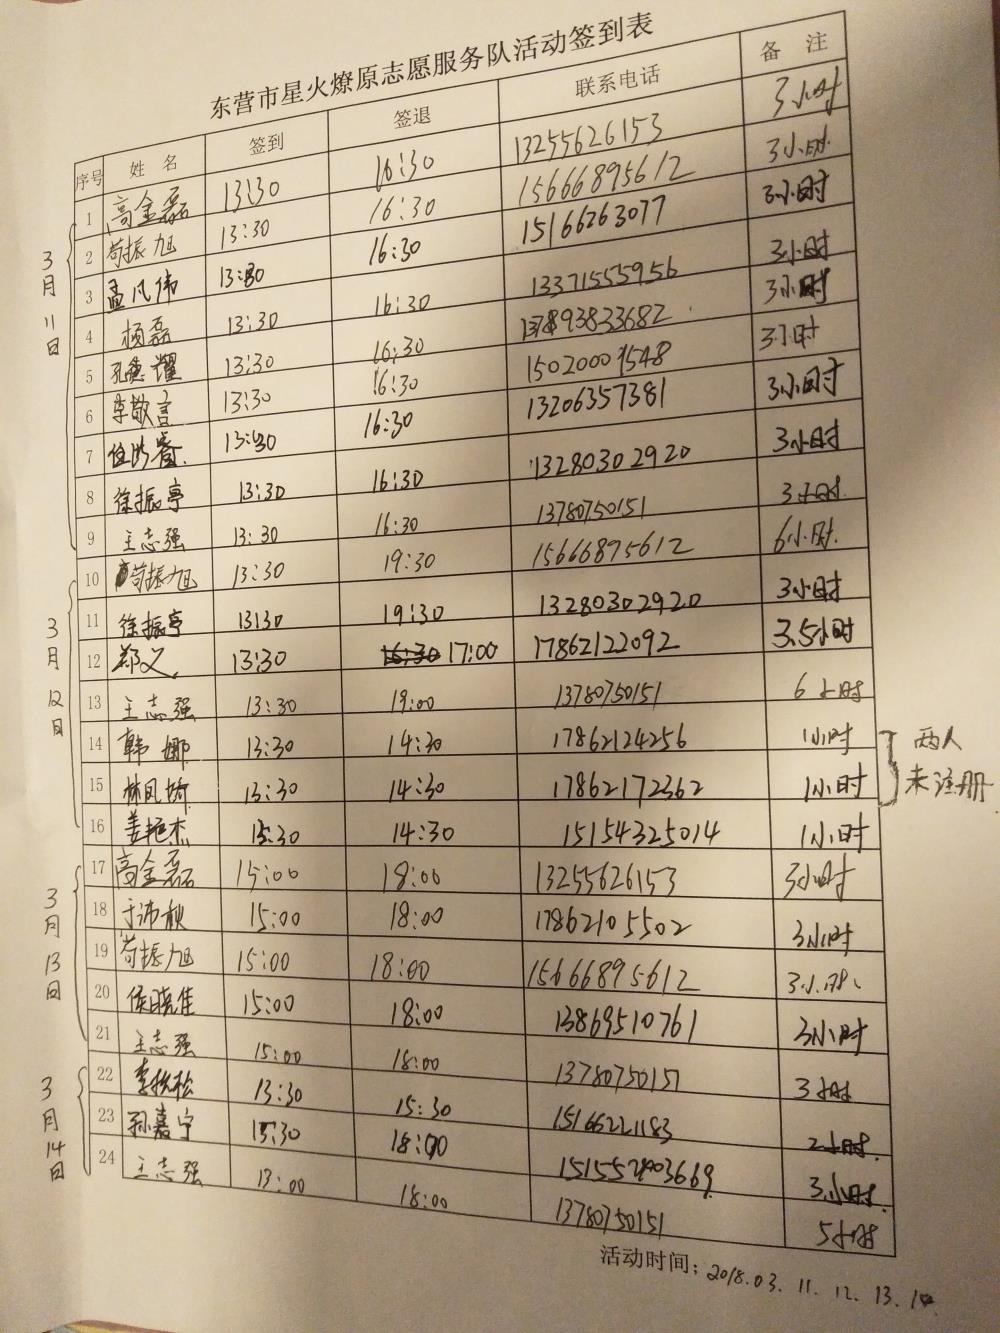 东营市星火燎原志愿服务队活动签到表
序号 姓名 签到 签退 联系电话 备注
3月11日
1 高金磊 13:30 16:30 13255626153 3小时
2 苟振旭 13:30 16:30 15666895612 3小时
3 孟凡伟 13:30 16:30 15166263077 3小时
4 杨磊 13:30 16:30 13371555956 3小时
5 孔德耀 13:30 16:30 3小时
6 李敬言 13:30 16:30 3小时
7 13:30 16:30 13206357381 3小时
8 徐振亭 13:30 16:30 13280302920 3小时
9 王志强 13:30 16:30 13780750151 3小时
3月12日
10 苟振旭 13:30 19:30 15666895612 6小时
11 徐振亭 13:30 19:30 13280302920 3小时
12 郑义 13:30 16:30 17:00 17862122092 3.5小时
13 王志强 13:30 19:00 13780750151 6小时
14 韩娜 13:30 14:30 17862124256 1小时
15 林凤娇 13:30 14:30 17862172362 1小时
两人
未注册
16 姜艳杰 13:30 14:30 15154325014 1小时
3月13日
17 高金磊 15:00 18:00 13255626153 3小时
18 于沛秋 15:00 18:00 17862105502 3小时
19 苟振旭 15:00 18:00 15666895612 3小时
20 侯晓佳 15:00 18:00 13869510761 3小时
21 王志强 15:00 18:00 13780750151 3小时
3月14日
22 13:30 15:30 15166221183 2小时
23 孙嘉宁 13:30 18:00 3小时
24 王志强 13:00 18:00 13780750151 5小时
活动时间：2018.03.11.12.13.14